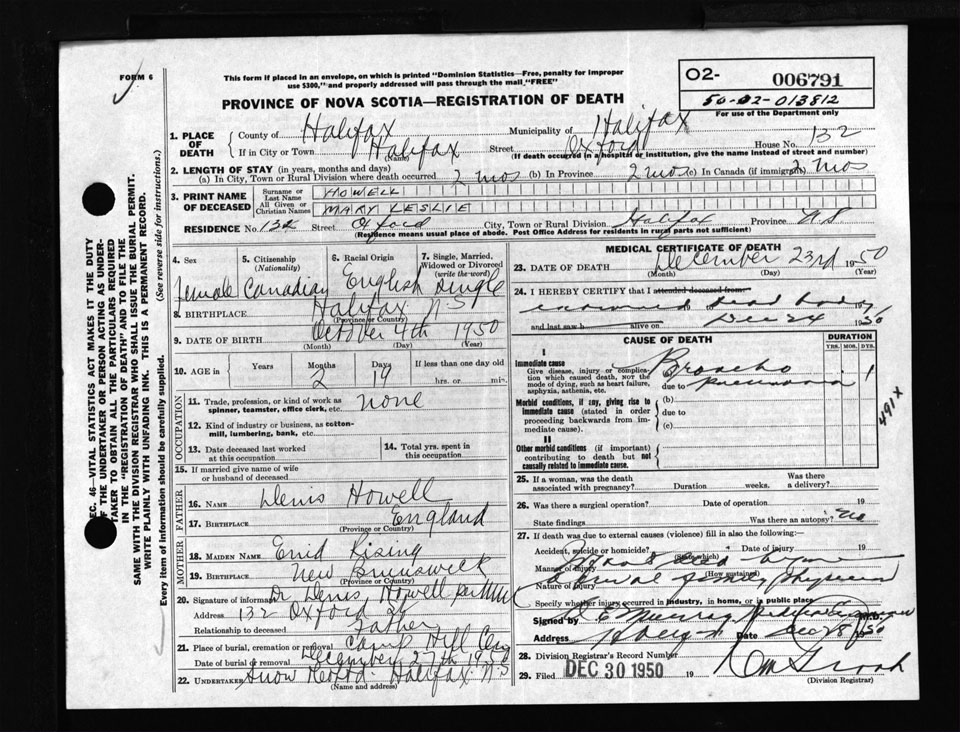 FORM 6
This form if placed in an envelope, on which is printed "Dominion Statistics—Free, penalty for improper
use $300," and properly addressed will pass through the mail "FREE"
PROVINCE OF NOVA SCOTIA—REGISTRATION OF DEATH
O2- 006791
50-02-013812
For use of the Department only
1. PLACE OF DEATH
County of Halifax Municipality of Halifax
If in City or Town Halifax (Name) Street Oxford House No. 132
(If death occurred in a hospital or institution, give the name instead of street and number)
2. LENGTH OF STAY (in years, months and days)
(a) In City, Town or Rural Division where death occurred 2 mos (b) In Province 2 mos (c) In Canada (if immigrant) 2 mos
3. PRINT NAME OF DECEASED
Surname or Last Name HOWELL
All Given or Christian Names MARY LESLIE
RESIDENCE No. 132 Street Oxford City, Town or Rural Division Halifax Province N.S.
(Residence means usual place of abode. Post Office Address for residents in rural parts not sufficient)
4. Sex 5. Citizenship (Nationality) 6. Racial Origin 7. Single, Married, Widowed or Divorced (write the word)
female Canadian English single
8. BIRTHPLACE Halifax N.S.
(Province or Country)
9. DATE OF BIRTH October 4th 1950
(Month) (Day) (Year)
10. AGE in Years Months Days If less than one day old
2 19 hrs. or min.
OCCUPATION
11. Trade, profession, or kind of work as spinner, teamster, office clerk, etc. none
12. Kind of industry or business, as cotton-mill, lumbering, bank, etc.
13. Date deceased last worked at this occupation
14. Total yrs. spent in this occupation
15. If married give name of wife or husband of deceased
FATHER
16. NAME Denis Howell
17. BIRTHPLACE England
(Province or Country)
MOTHER
18. MAIDEN NAME Enid Rising
19. BIRTHPLACE New Brunswick
(Province or Country)
20. Signature of informant Dr Denis Howell per
Address 132 Oxford St
Relationship to deceased Father
21. Place of burial, cremation or removal Camp Hill Cem
Date of burial or removal December 27th 1950
22. UNDERTAKER Snow Halifax N.S
(Name and address)
MEDICAL CERTIFICATE OF DEATH
23. DATE OF DEATH December 23rd 1950
(Month) (Day) (Year)
24. I HEREBY CERTIFY that I attended deceased from
dead body 19
and last saw h alive on Dec 24 1950
CAUSE OF DEATH DURATION
YRS. MOS. DYS.
I
Immediate cause
Give disease, injury or complication which caused death, NOT the mode of dying, such as heart failure, asphyxia, asthenia, etc.
Broncho
due to pneumonia 1
Morbid conditions, if any, giving rise to immediate cause (stated in order proceeding backwards from immediate cause).
(b)
due to
(c)
II
Other morbid conditions (if important) contributing to death but not causally related to immediate cause.
491x
25. If a woman, was the death associated with pregnancy? Duration weeks. Was there a delivery?
26. Was there a surgical operation? Date of operation 19
State findings Was there an autopsy? No
27. If death was due to external causes (violence) fill in also the following:
Accident, suicide or homicide? (State which) Date of injury 19
Manner of injury
(How sustained)
Nature of injury
Specify whether injury occurred in industry, in home, or in public place
Signed by Murray M.D.
Address Halifax Date Dec 28/50
28. Division Registrar's Record Number
29. Filed DEC 30 1950 19
(Division Registrar)
SEC. 46—VITAL STATISTICS ACT MAKES IT THE DUTY
OF THE UNDERTAKER OR PERSON ACTING AS UNDER-
TAKER TO OBTAIN ALL THE PARTICULARS REQUIRED
IN THE "REGISTRATION OF DEATH" AND TO FILE THE
SAME WITH THE DIVISION REGISTRAR WHO SHALL ISSUE THE BURIAL PERMIT.
WRITE PLAINLY WITH UNFADING INK. THIS IS A PERMANENT RECORD.
Every item of information should be carefully supplied. (See reverse side for instructions.)